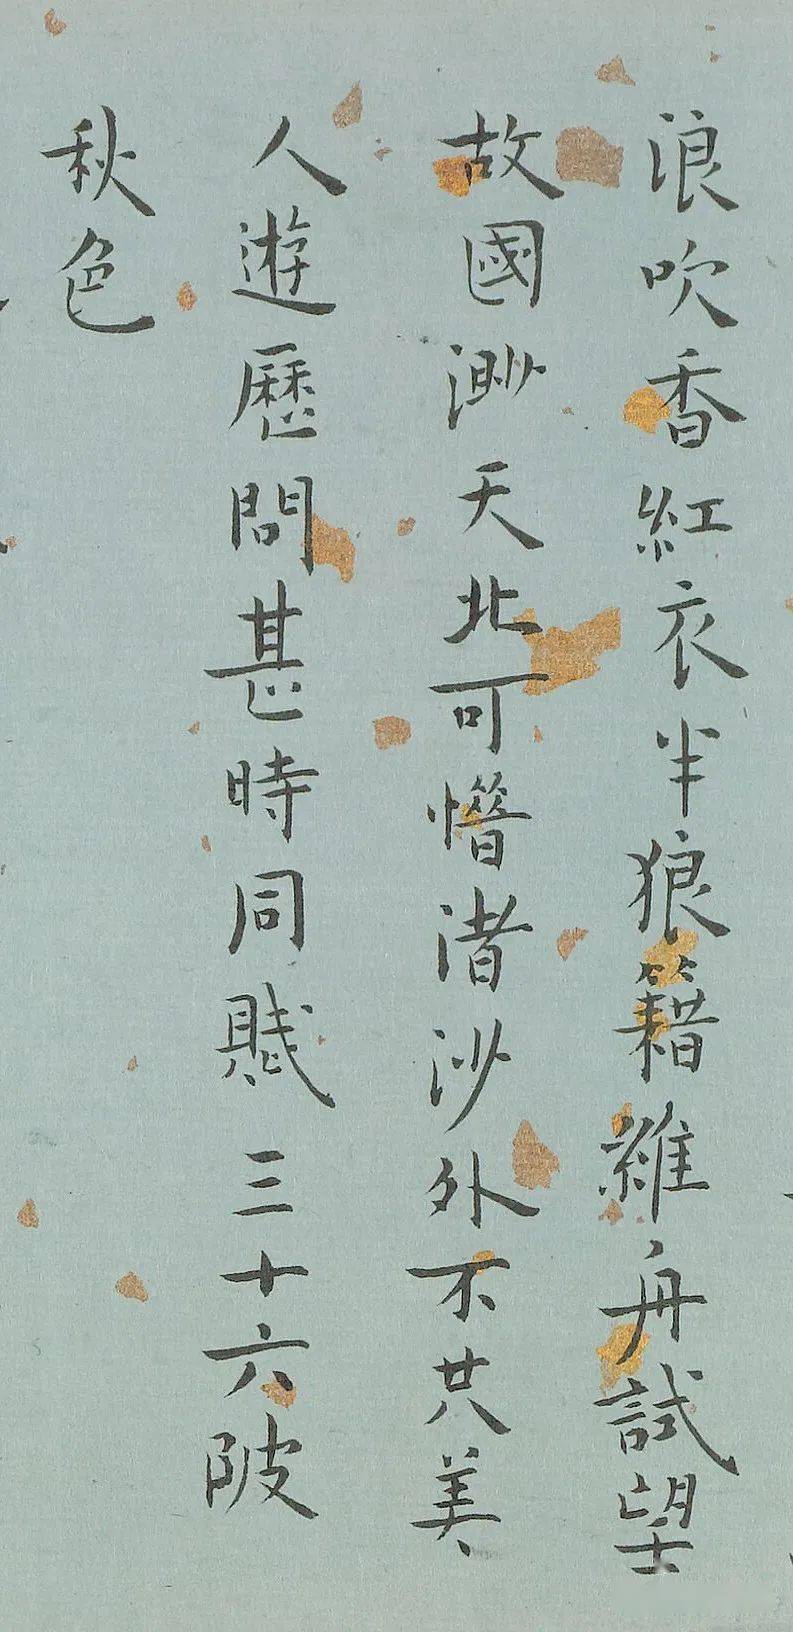 浪吹香紅衣半狼籍維舟試望
故國渺天北可惜渚沙外不共美
人遊歷問甚時同賦三十六陂
秋色